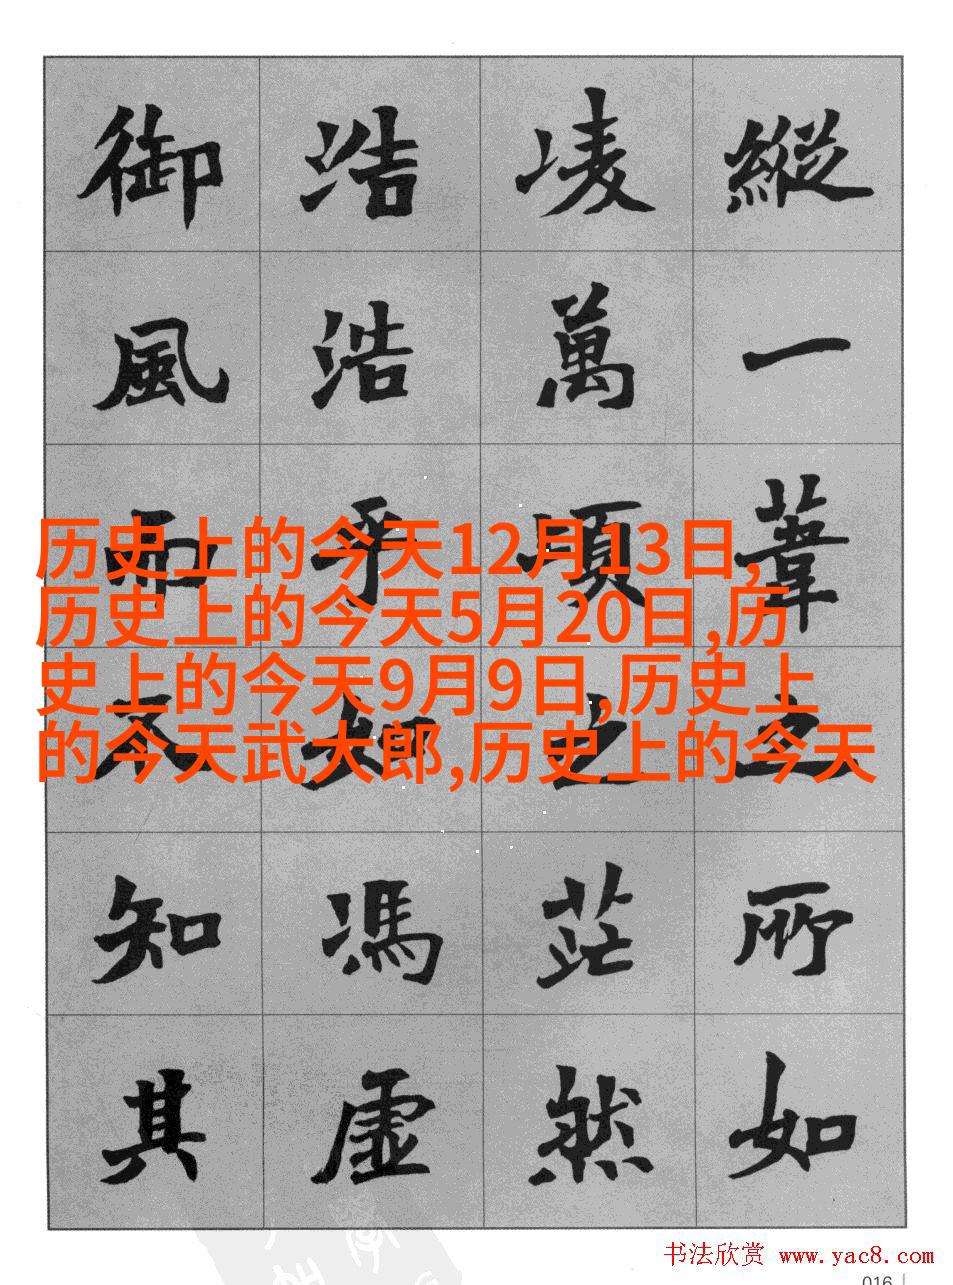 縱一葦之所如
凌萬頃之茫然
浩浩乎如馮虛
御風而不知其
历史上的今天12月13日,
历史上的今天5月20日,历
史上的今天9月9日,历史上
的今天武大郎,历史上的今天
书法欣赏 www.yac8.com
016